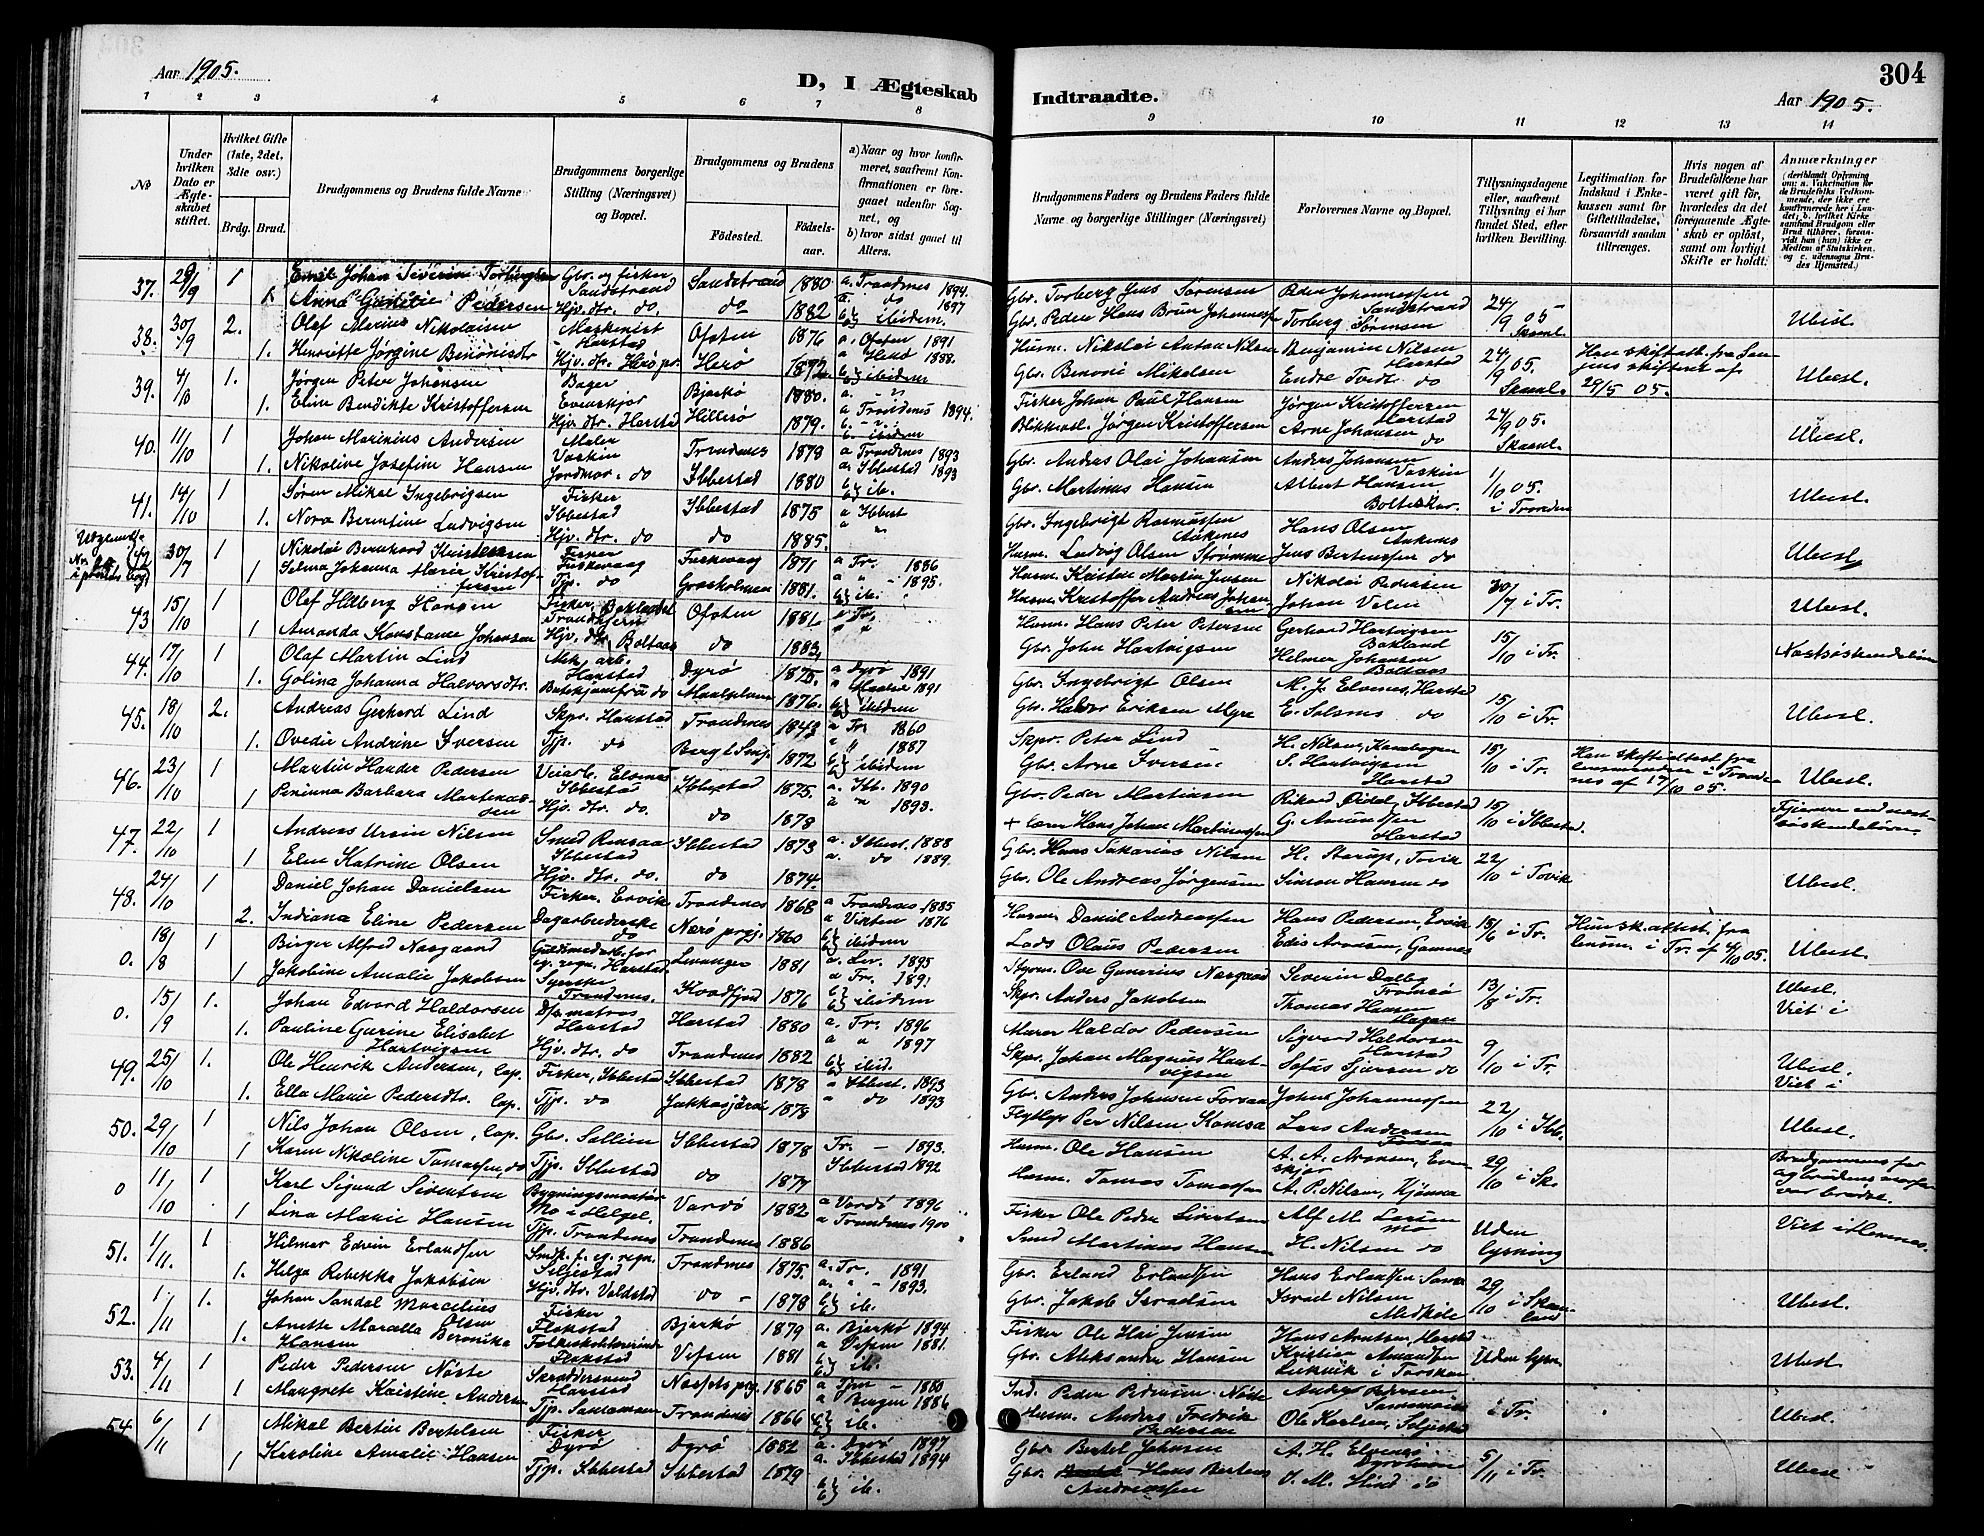 Aar 1905.
D, I Ægteskab
Indtraadte.
304
Aar 1905.
1 2 3 4 5 6 7 8
9 10 11 12 13 14
No
Under hvilken Dato er Ægteskabet stiftet.
Hvilket Gifte (1ste, 2det, 3die osv.)
Brdg. Brud.
Brudgommens og Brudens fulde Navne
Brudgommens borgerlige Stilling (Næringsvei) og Bopæl.
Brudgommens og Brudens
Fødested.
Fødselsaar.
a) Naar og hvor konfirmeret, saafremt Konfirmationen er foregaaet udenfor Sognet, og
b) hvor sidst gaaet til Alters.
Brudgommens Faders og Brudens Faders fulde Navne og borgerlige Stillinger (Næringsvei)
Forlovernes Navne og Bopæl.
Tillysningsdagene eller, saafremt Tillysning ei har fundet Sted, efter hvilken Bevilling.
Legitimation for Indskud i Enkekassen samt for Giftetilladelse, forsaavidt saadan tiltrænges.
Hvis nogen af Brudefolkene har været gift før, hvorledes da det foregaaende Ægteskab er opløst, samt om lovligt Skifte er holdt.
Anmærkninger
37. 29/9 1 Emil Johan Severin Torbergsen Gbr. og fisker Sandstrand Sandstrand 1880 a. Trondenes 1894.
1 Anna Pedersen Hjv. dtr. do. do 1882 a. do 1897 ibidem.
Gbr. Torberg Jens Sørensen Peder Johannessen Sandstrand 24/9 05 Skaanl.
Gbr. Peder Hans Brun Johannessen Torberg Sørensen Ubesl.
38. 30/9 2. Olaf Merius Nikolaisen Maskinist Harstad Ofoten 1876 a Ofoten 1891
1. Henriette Jørgine Benonisdtr Hjv. dtr. Herø pr. Herø 1872 a Herø 1888. ibidem
Husm. Nikolai Anton Nilsen Benjamin Nilsen Harstad 24/9 05. Skaanl.
Gbr. Benoni Mikelsen Endre Tvedt do 29/5 05. Ubesl.
39. 4/10 1. Jørgen Peter Johansen Bager Evenskjer Bjarkø 1880.
1. Eline Bendikte Kristoffersen Hjv. dtr. Harstad Hillesø 1879. a Trondenes 1894. ibidem
Fisker Johan Paul Hansen Jørgen Kristoffersen Harstad 24/9 05. Skaanl.
Blikkensl. Jørgen Kristoffersen Arne Johansen do Ubesl.
40. 11/10 1 Johan Marinius Andersen Maler Vaskin Trondenes 1878 a Trondenes 1893
1. Nikoline Josefine Hansen Jordmor. do Ibbestad 1880 a. Ibbestad 1893 ib.
Gbr. Anders Olai Johansen Anders Johansen Vaskin 1/10 05.
Gbr. Martinus Hansen Albert Hansen Boltsskar. i Tronden Ubesl.
41. 14/10 1 Søren Mikal Ingebrigtsen Fisker Ibbestad Ibbestad 1875 a Ibbest
1. Nora Berntine Ludvigsen Hjv. dtr. do do 1885.
Gbr. Ingebrigt Rasmussen Aakenes Hans Olsen Aakenes
Husm. Ludvig Olsen Strømme Jens Berteussen do Ubesl.
42 30/7 1 Nikolai Bernhard Kristensen Fisker Fuskevaag Fuskevaag 1871 a Tr. 1886
1 Selma Johanna Marie Kristoffersen Tjp. do Grasholmen 1881. a " 1895. ib.
Husm. Kristen Martin Jensen Nikolai Pedersen 30/7 i Tr.
Husm. Kristoffer Andreas Johansen Johan Ubesl.
43 15/10 1 Olaf Hilberg Hansen Fisker Trondhjem Ofoten 1881 a Tr.
1 Amanda Konstanse Johansen Hjv. dtr. Boltaas do 1883.
Husm. Hans Peter Petersen Gerhard Hartvigsen Bakland 15/10 i Tr.
Gbr. John Hartvigsen Helmer Johansen Boltaas Næstsøskendebørn
44. 17/10 1 Olaf Martin Lind Mek. arb. Harstad Dyrø 1875. a Dyrø 1891
1. Golina Johanna Halvorsdtr. Butikjomfru do Maalselven 1876. a Maalse 1891 ibidem
Gbr. Ingebrigt Olsen M. J. Elvenes, Harstad 15/10 i Tr.
Gbr. Haldor Eriksen Myre E. Solsnes do Ubesl.
45. 18/10 2. Andreas Gerhard Lind Skpr. Harstad Trondenes 1843 a Tr. 1860
1. Ovedie Andrine Iversen Tjp. do Berg i Senj. 1872 a " 1887 ibidem
Skpr. Peter Lind H. Nilsen, Kanebogen 15/10 i Tr.
Gbr. Arne Iversen S. Hartvigsen Harstad Han skifteattest fra lensmanden i Trondenes af 17/10 05. Ubesl.
46. 23/10 1 Martin Hander Pedersen Veiarb. Elvenes Ibbestad Ibbestad 1875. a. Ibb. 1890
1 Peninna Barbara Martenassen Hjv. dtr. do. do 1878 a " 1893.
Gbr. Peder Martinsen Rikard Ibbestad 15/10 i Ibbestad.
+ Lærer Hans Johan Martinussen G. Amundsen Harstad Fjernere end næstsøskendebørn
47. 22/10 1 Andreas Ursin Nilsen Smed Rensaa Ibbestad Ibbestad 1873 a. Ibbest. 1888
1 Elen Katrine Olsen Hjv. dtr. do. do 1874. a. do 1889.
Gbr. Hans Sakarias Nilsen H. Starup, Tovik 22/10 i Tovik
Gbr. Ole Andreas Jørgensen Simon Hansen do Ubesl.
48. 24/10 1 Daniel Johan Danielsen Fisker, Ervik Trondenes 1868 a Trondenes 1885
2. Indiana Eline Pedersen Dagarbeiderske do Nærø prgj. 1860 a Vikten 1876 ibidem
Husm. Daniel Andreassen Hans Pedersen, Ervik 15/6 i Tr.
Lods Olaus Pedersen Edis Arnesen, Gamnes Hun sk. attest. fra lensm. i Tr. af 4/10 05. Ubesl.
0. 18/8 1 Birger Alfred Nasgaard Guldsmedarb. for eg. regn. Harstad Levanger 1881 a. Lev. 1895
1 Jakobine Amalie Jakobsen Syerske Trondenes. Kvædfjord 1876 a Tr. 1891 ibidem
Styrm. Ove Gunerius Nasgaard Severin Dalbo Tromsø 13/8 i Tr. Ubesl.
Skpr. Anders Jakobsen Thomas Hansen Hagan Viet i
0. 15/9 1. Johan Edvard Haldorsen Dpsmatros Harstad Harstad 1880 a. Tr. 1896
1. Pauline Gurine Elisabet Hartvigsen Hjv. dtr. do Trondenes 1882 a " 1897 ibid.
Murer Haldor Pedersen Sigvard Haldorsen Harstad 9/10 i Tr.
Skpr. Johan Magnus Hartvigsen Sofus Sjursen do Ubesl. Viet i
49. 25/10 1. Ole Henrik Andersen, lap. Fisker, Ibbestad Ibbestad 1878 a Ibbest. 1893
1. Ella Marie Pedersdtr. lap. Tjp. do Jukkasjärvi 1878 a do 1893
Gbr. Anders Johansen Forsaa Johan Johannessen 22/10 i Ibb.
Flytlap Per Nilsen Komsa Lars Andersen Forsaa Ubesl.
50. 29/10 1 Nils Johan Olsen, lap. Gbr. Sollien Ibbestad 1878 Tr. 1893.
1 Karen Nikoline Tomassen, do Tjp. Ibbestad do 1877 Ibbestad 1892
Husm. Ole Hansen A. A. Aronsen, Evenskjer 29/10 i Sk.
Husm. Tomas Tomassen A. P. Nilsen, Kjønna Brudgommens far og brudens morfar var brødre.
0 11/10 1 Karl Sigurd Sivertsen Bygningsmontør Mo i Helgel. Vardø 1882 a Vardø 1896
1 Lina Marie Hansen Tjp. Trondenes Trondenes 1886 a Trondenes 1900
Fisker Ole Peder Sivertsen Alf M. Larsen Mo Uden lysning Viet i Hemnes.
Smed Martinus Hansen H. Nilsen do
51. 1/11. 1 Hilmar Edvin Erlandsen Smk. f. eg. regn. Seljestad Trondenes 1875. a. Tr. 1891
1. Helga Rebekka Jakobsen Hjv. dtr. Voldstad do 1878 a. " 1893. ib.
Gbr. Erland Erlandsen Hans Erlandsen Sama 29/10 i Skaanland
Gbr. Jakob Israelsen Israel Nilsen Medkile Ubesl.
52. 1/11 1. Johan Sandal Marcelius Olsen Fisker Flakstad Bjarkø 1879 a. Bjarkø 1894
1. Anette Marcella Beronika Hansen Folkeskolelærerinde Flakstad Vefsen 1881 a Vefsen 1881. ib.
Fisker Ole Hai Jensen Hans Arntsen, Harstad Uden lysn.
Gbr. Aleksander Hansen Kristian Amundsen Leikvik i Torsken Ubesl.
53. 4/11 1 Peder Pedersen Nøste Skræddersvend Harstad Nøsjets prg. 1865 a 1880
1 Maugrete Kristine Andersen Tjp. Trondenes 1866 a Bergen 1886 ib.
Ind. Peder Pedersen Nøste Anders Pedersen i Tr.
Husm. Anders Fredrik Pedersen Ole Karlsen, Seljestad Ubesl.
54. 6/11 1 Mikal Bertin Bertelsen Fisker Dyrø Dyrø 1882 a. Dyrø 1897
1 Karoline Amalie Hansen Tjp. Ibbestad Ibbestad 1879 a Ibbestad 1894 ib.
Gbr. Bertel Johnsen A. H. Elvenes 5/11 i Tr.
Gbr. Hans Bertens Andreassen O. M. Hind do Ubesl